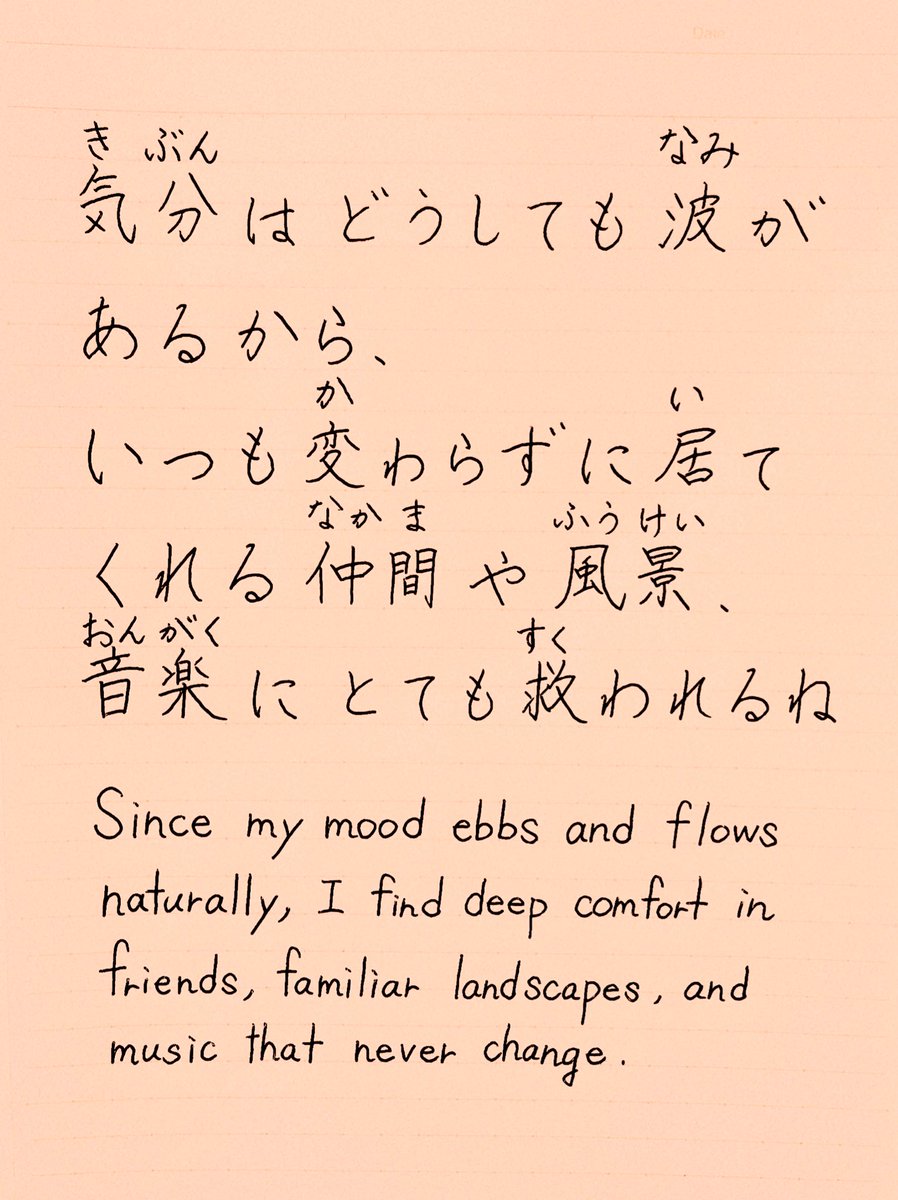 Date
き ぶん なみ
気分はどうしても波が
あるから、
か い
いつも変わらずに居て
なかま ふうけい
くれる仲間や風景、
おんがく すく
音楽にとても救われるね
Since my mood ebbs and flows
naturally, I find deep comfort in
friends, familiar landscapes, and
music that never change.